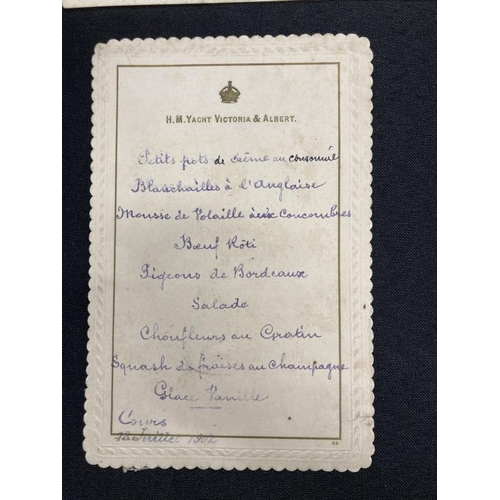 H.M. YACHT VICTORIA & ALBERT.
Petits pots de crême au consommé
Blanchailles à l'Anglaise
Mousse de Volaille aux Concombres
Bœuf Rôti
Pigeons de Bordeaux
Salade
Choufleurs au Gratin
Squash de fraises au Champagne
Glace Vanille
Juillet 1902